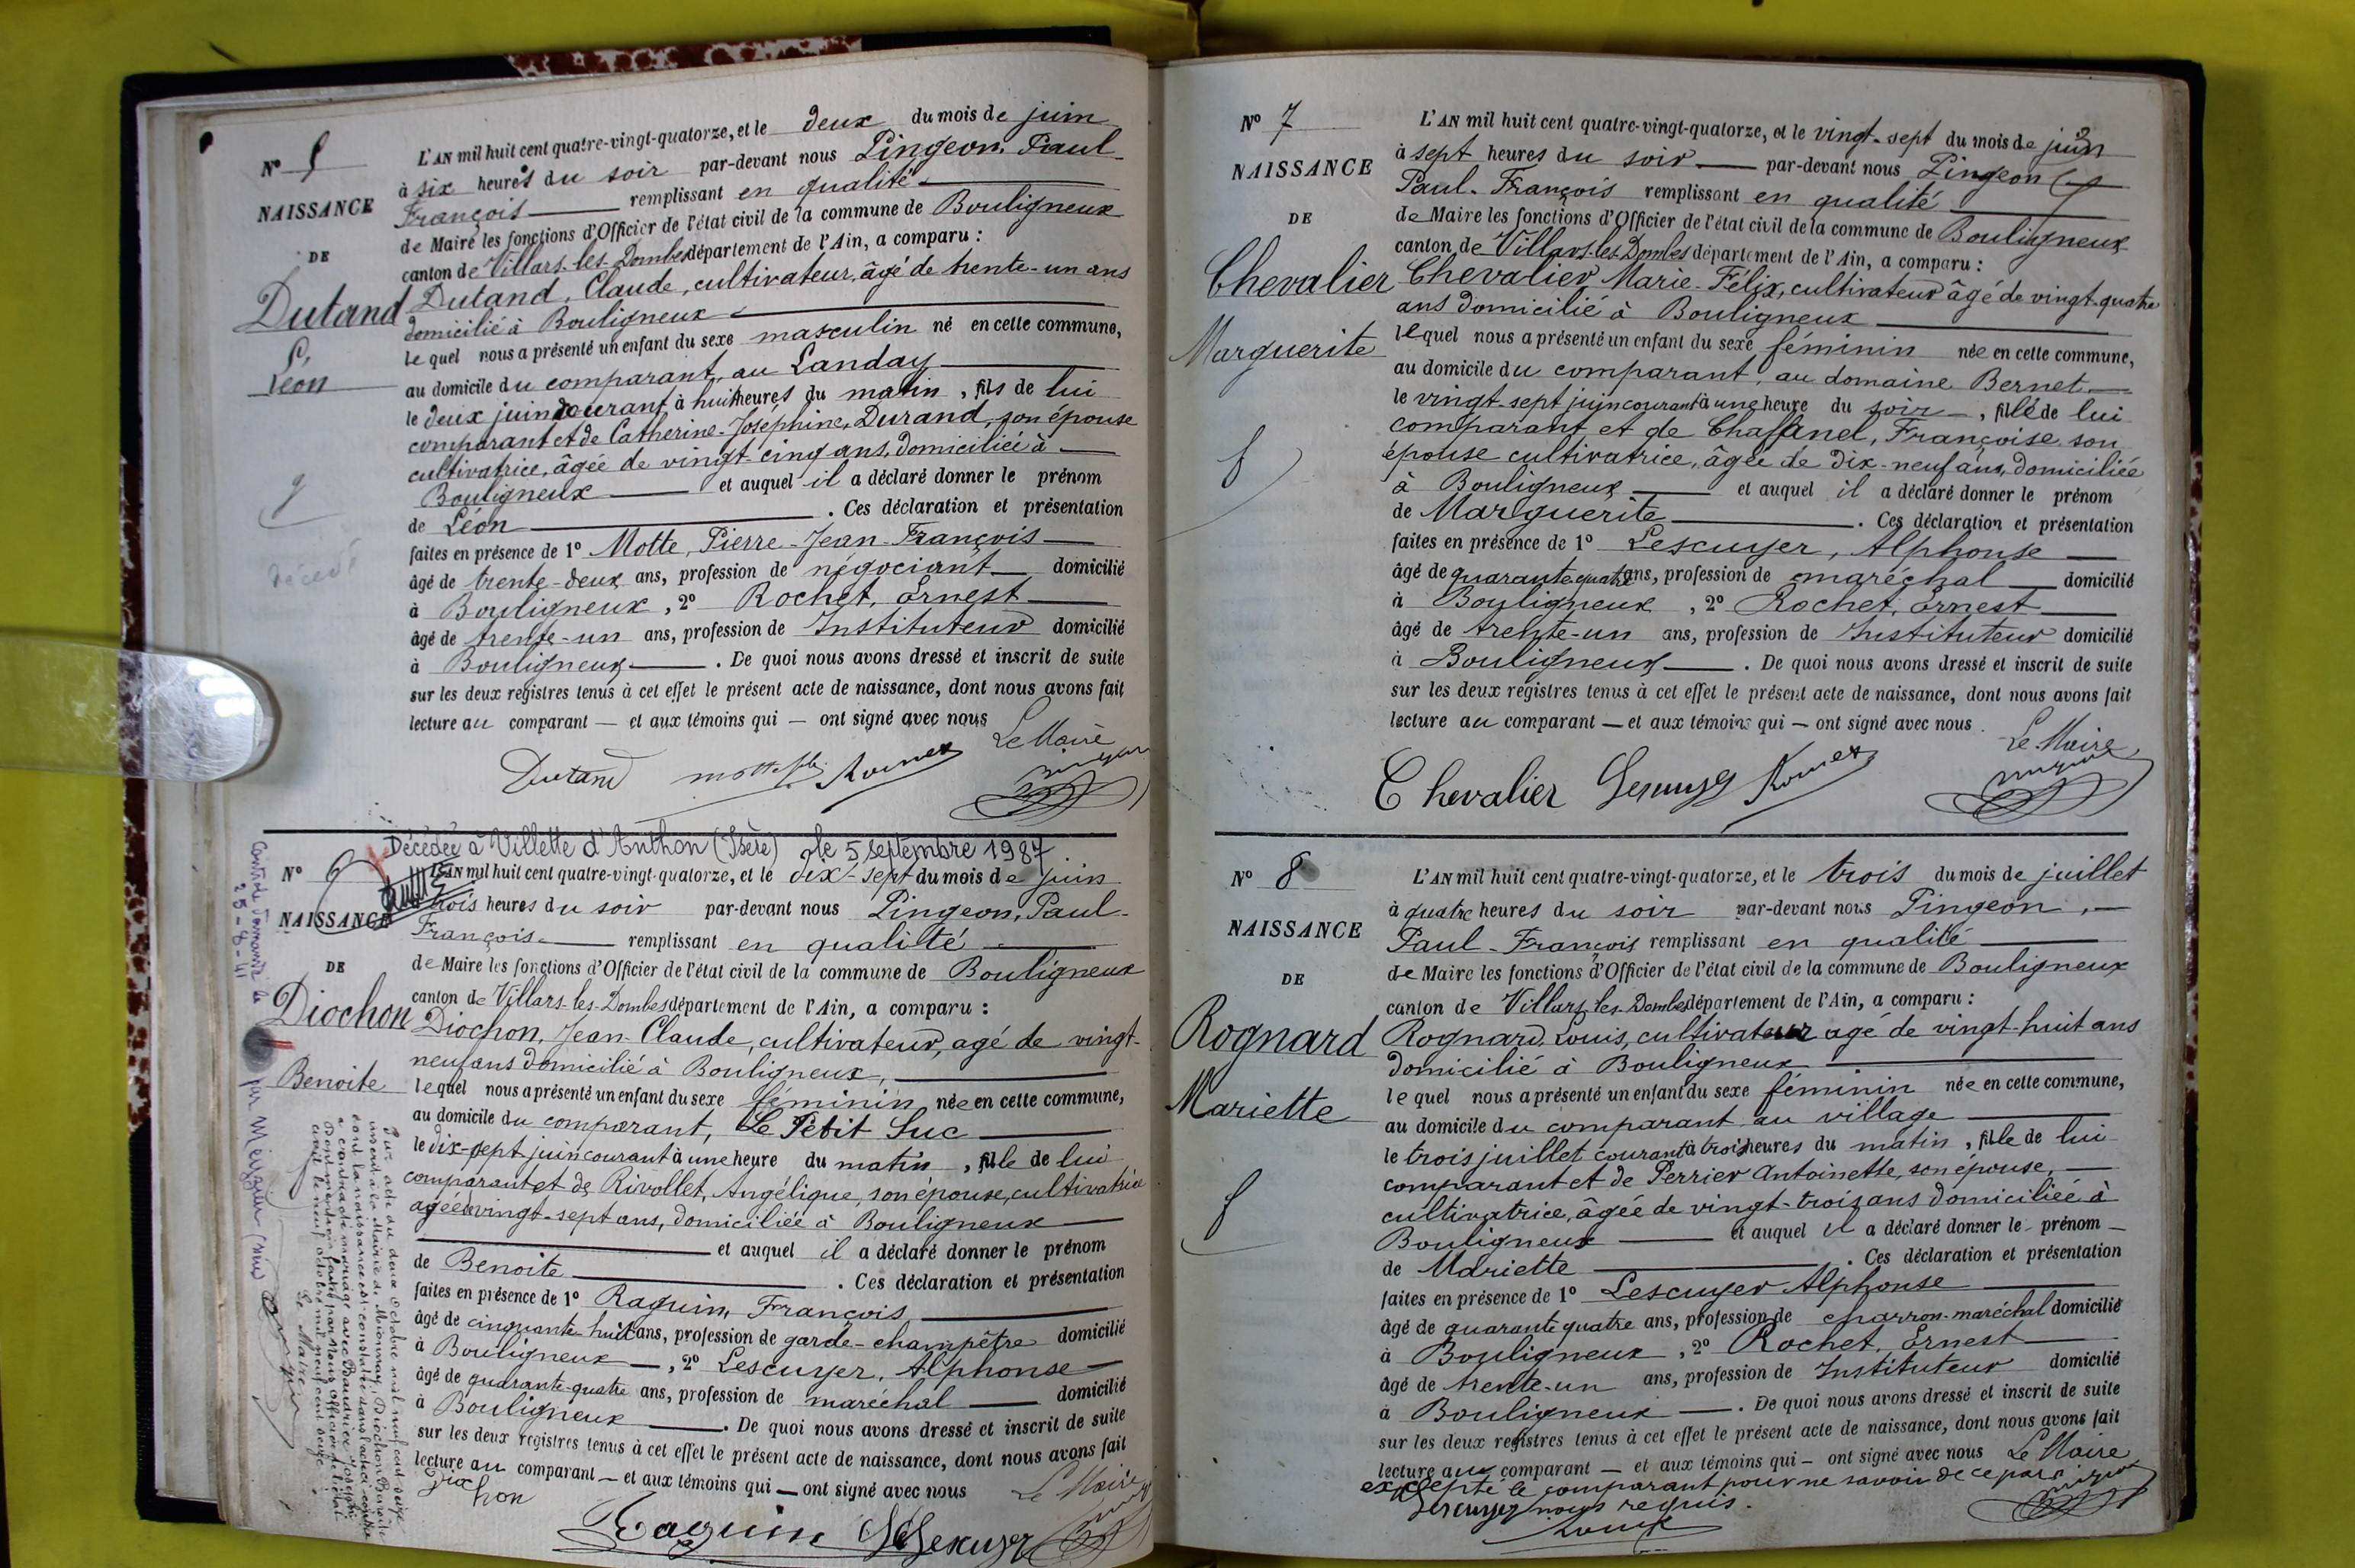 N° 5
NAISSANCE
DE
Dutand
Léon
décédé
L'AN mil huit cent quatre-vingt-quatorze, et le deux du mois de juin
à six heures du soir par-devant nous Pingeon, Paul-
François remplissant en qualité
de Maire les fonctions d'Officier de l'état civil de la commune de Bouligneux
canton de Villars-les-Dombes département de l'Ain, a comparu :
Dutand, Claude, cultivateur, âgé de trente-un ans
domicilié à Bouligneux
lequel nous a présenté un enfant du sexe masculin né en cette commune,
au domicile du comparant, au Landay
le deux juin courant, à huit heures du matin, fils de lui
comparant et de Catherine-Joséphine, Durand, son épouse
cultivatrice, âgée de vingt-cinq ans, domiciliée à
Bouligneux et auquel il a déclaré donner le prénom
de Léon . Ces déclaration et présentation
faites en présence de 1° Motte, Pierre-Jean-François
âgé de trente-deux ans, profession de négociant domicilié
à Bouligneux, 2° Rochet, Ernest
âgé de trente-un ans, profession de Instituteur domicilié
à Bouligneux . De quoi nous avons dressé et inscrit de suite
sur les deux registres tenus à cet effet le présent acte de naissance, dont nous avons fait
lecture au comparant — et aux témoins qui — ont signé avec nous
Le Maire
Dutand
Décédée à Villette d'Anthon (Isère) le 5 septembre 1987
N° 6
NAISSANCE
DE
Diochon
Benoite
L'AN mil huit cent quatre-vingt-quatorze, et le dix-sept du mois de juin
trois heures du soir par-devant nous Pingeon, Paul-
François remplissant en qualité
de Maire les fonctions d'Officier de l'état civil de la commune de Bouligneux
canton de Villars-les-Dombes département de l'Ain, a comparu :
Diochon, Jean-Claude, cultivateur, agé de vingt-
neuf ans domicilié à Bouligneux,
lequel nous a présenté un enfant du sexe féminin née en cette commune,
au domicile du comparant, Le Petit Suc
le dix-sept juin courant à une heure du matin, fille de lui
comparant et de Rivollet, Angélique, son épouse, cultivatrice
agée de vingt-sept ans, domiciliée à Bouligneux
et auquel il a déclaré donner le prénom
de Benoite . Ces déclaration et présentation
faites en présence de 1° Raguin, François
âgé de cinquante-huit ans, profession de garde-champêtre domicilié
à Bouligneux —, 2° Lescuyer, Alphonse
âgé de quarante-quatre ans, profession de maréchal domicilié
à Bouligneux . De quoi nous avons dressé et inscrit de suite
sur les deux registres tenus à cet effet le présent acte de naissance, dont nous avons fait
lecture au comparant — et aux témoins qui — ont signé avec nous
Le Maire
Diochon
Raguin
Par acte du deux octobre mil neuf cent seize
inscrit à la Mairie de Mionnay, Diochon Benoite
dont la naissance est constatée dans l'acte ci-contre
a contracté mariage avec Baudrier Joseph
Dont mention faite par Nous officier de l'état
civil le neuf octobre mil neuf cent seize.
Le Maire
25-8-41
N° 7
NAISSANCE
DE
Chevalier
Marguerite
L'AN mil huit cent quatre-vingt-quatorze, et le vingt-sept du mois de juin
à sept heures du soir par-devant nous Pingeon
Paul-François remplissant en qualité
de Maire les fonctions d'Officier de l'état civil de la commune de Bouligneux
canton de Villars-les-Dombes département de l'Ain, a comparu :
Chevalier Marie-Félix, cultivateur âgé de vingt-quatre
ans domicilié à Bouligneux
lequel nous a présenté un enfant du sexe féminin née en cette commune,
au domicile du comparant, au domaine Bernet
le vingt-sept juin courant à une heure du soir, fille de lui
comparant et de Chaffanel, Françoise son
épouse cultivatrice, âgée de dix-neuf ans, domiciliée
à Bouligneux et auquel il a déclaré donner le prénom
de Marguerite . Ces déclaration et présentation
faites en présence de 1° Lescuyer, Alphonse
âgé de quarante quatre ans, profession de maréchal domicilié
à Bouligneux, 2° Rochet, Ernest
âgé de trente-un ans, profession de Instituteur domicilié
à Bouligneux . De quoi nous avons dressé et inscrit de suite
sur les deux registres tenus à cet effet le présent acte de naissance, dont nous avons fait
lecture au comparant — et aux témoins qui — ont signé avec nous.
Le Maire
Chevalier
N° 8
NAISSANCE
DE
Rognard
Mariette
L'AN mil huit cent quatre-vingt-quatorze, et le trois du mois de juillet
à quatre heures du soir par-devant nous Pingeon,
Paul-François remplissant en qualité
de Maire les fonctions d'Officier de l'état civil de la commune de Bouligneux
canton de Villars-les-Dombes département de l'Ain, a comparu :
Rognard, Louis, cultivateur agé de vingt-huit ans
domicilié à Bouligneux
lequel nous a présenté un enfant du sexe féminin née en cette commune,
au domicile du comparant au village
le trois juillet courant à trois heures du matin, fille de lui
comparant et de Perrier Antoinette, son épouse,
cultivatrice, âgée de vingt-trois ans domiciliée à
Bouligneux et auquel il a déclaré donner le prénom
de Mariette . Ces déclaration et présentation
faites en présence de 1° Lescuyer Alphonse
âgé de quarante quatre ans, profession de charron-maréchal domicilié
à Bouligneux, 2° Rochet, Ernest
âgé de trente-un ans, profession de Instituteur domicilié
à Bouligneux . De quoi nous avons dressé et inscrit de suite
sur les deux registres tenus à cet effet le présent acte de naissance, dont nous avons fait
lecture au comparant — et aux témoins qui — ont signé avec nous Le Maire
excepté le comparant pour ne savoir de ce par
Lescuyer nous requis.